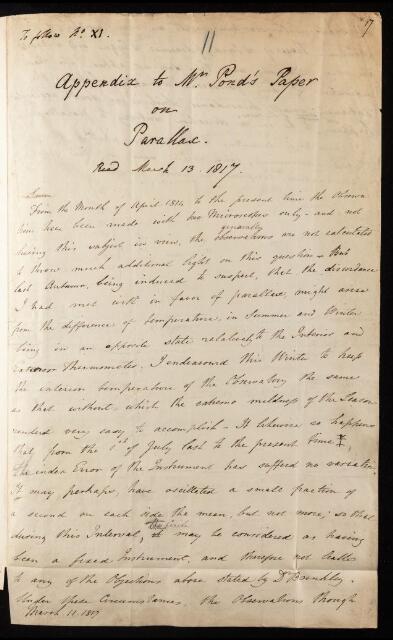 To follow No. XI.
11
17
Appendix to Mr. Pond's Paper
on
Parallax.
Read March 13. 1817.
From the Month of April 1814 to the present time the Observa
tions have been made with two Microscopes only - and not
having this subject in view, the generally observations are not calculated
to throw much additional light on this question - But
last Autumn, being induced to suspect, that the discordance
I had met with in favor of parallax, might arise
from the difference of temperature, in Summer and Winter
being in an opposite state relatively to the Interior and
exterior Thermometer, I endeavourd this Winter to keep
the interior temperature of the Observatory the same
as that without, which the extreme mildness of the Season
renderd very easy to accomplish - It likewise so happens
that from the 1st of July last to the present time
the index Error of the Instrument has sufferd no variation
It may perhaps, have oscillated a small fraction of
a second on each side the mean, but not more; so that
during this Interval, the circle may be considered as having
been a fixed Instrument, and therefore not liable
to any of the Objections above stated by Dr. Brinkley.
Under these Circumstances the Observations through
March 11. 1817